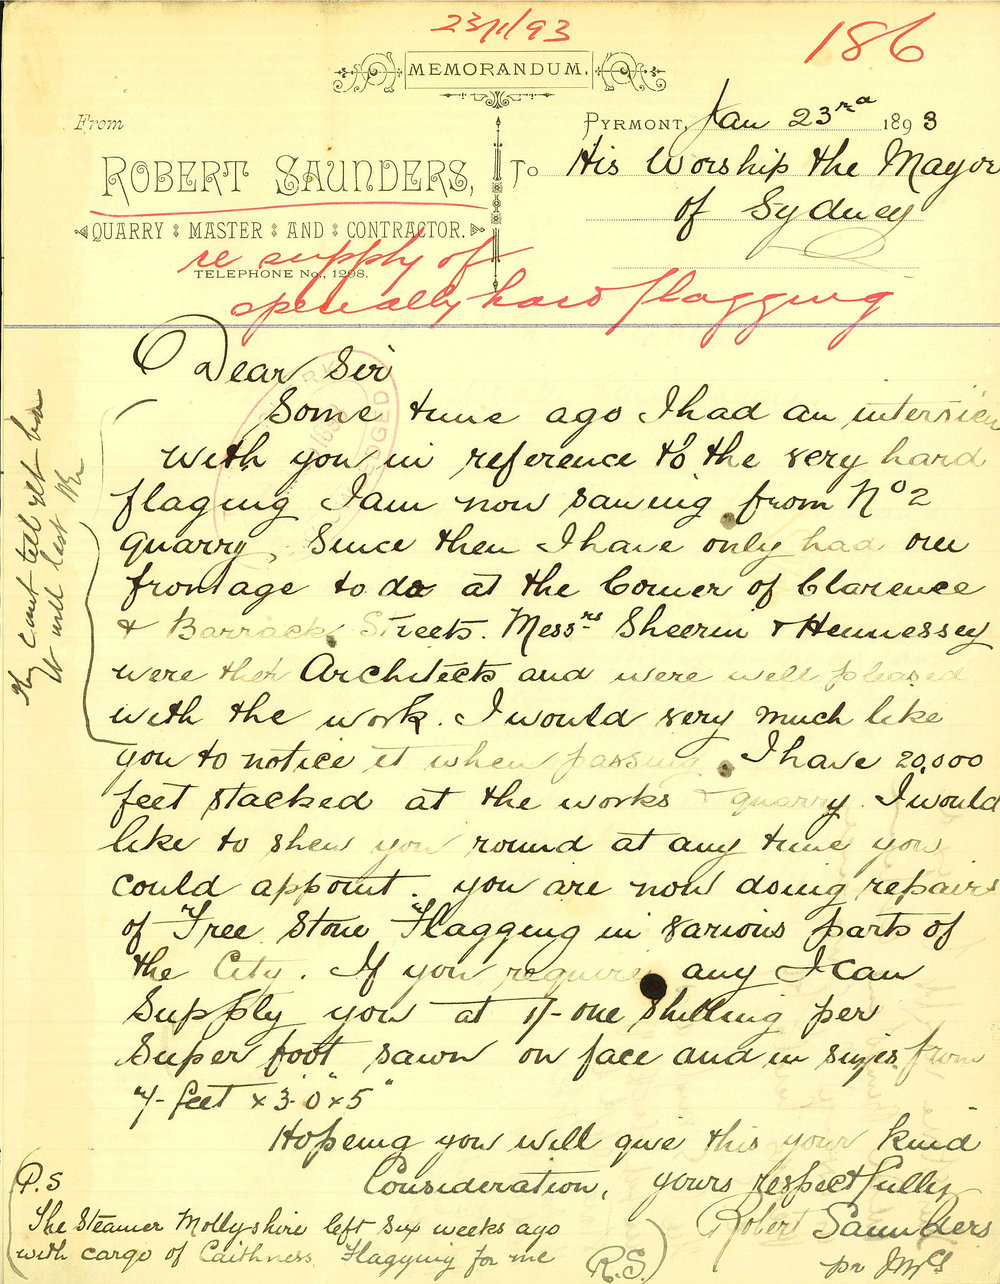 23/1/93
186
MEMORANDUM.
From
PYRMONT, Jan 23rd 1893
ROBERT SAUNDERS,
To His Worship the Mayor
of Sydney
QUARRY MASTER AND CONTRACTOR.
TELEPHONE No., 1298.
re supply of
specially hard flagging
Dear Sir
Some time ago I had an interview
with you in reference to the very hard
flaging I am now sawing from No 2
quarry, Since then I have only had one
frontage to do at the Corner of Clarence
& Barrack Streets. Messrs Sheerin & Hennessey
were then Architects and were well pleased
with the work. I would very much like
you to notice it when passing. I have 20,000
feet stacked at the works & quarry. I would
like to shew you round at any time you
could appoint. you are now doing repairs
of Free Stone Flagging in various parts of
the City. If you require any I can
Supply you at 1/- one Shilling per
Super foot sawn on face and in sizes from
7- feet x 3'-0" x 5"
Hopeing you will give this your kind
Consideration, yours respectfully
Robert Saunders
pr
P.S
The Steamer Mollyshire left six weeks ago
with cargo of Caithness Flagging for me
R.S.
They cant tell yet how
it will last